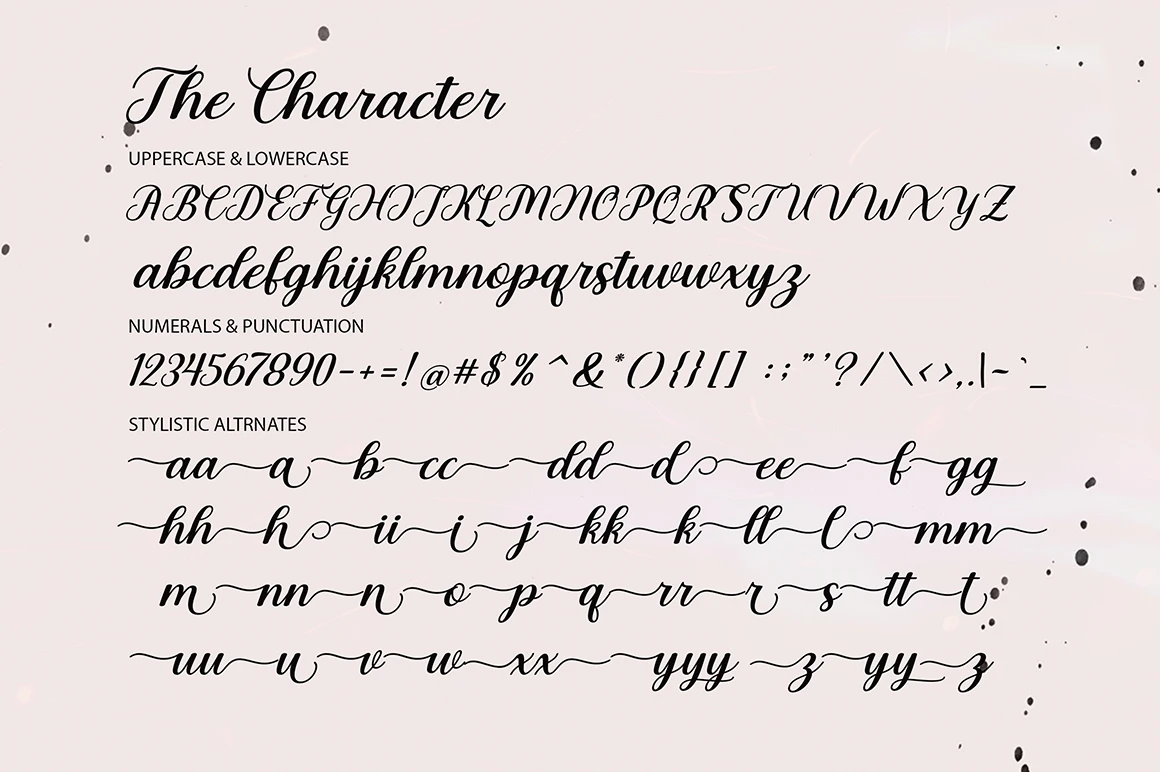 The Character
UPPERCASE & LOWERCASE
ABCDEFGHIJKLMNOPQRSTUVWXYZ
abcdefghijklmnopqrstuvwxyz
NUMERALS & PUNCTUATION
1234567890-+=!@#$%^&*(){}[] :;"'?/\<>,.|~`_
STYLISTIC ALTRNATES
aa a b cc dd d ee f gg
hh h ii i j kk k ll l mm
m nn n o p q rr r s tt t
uu u v w xx yyy z yy z